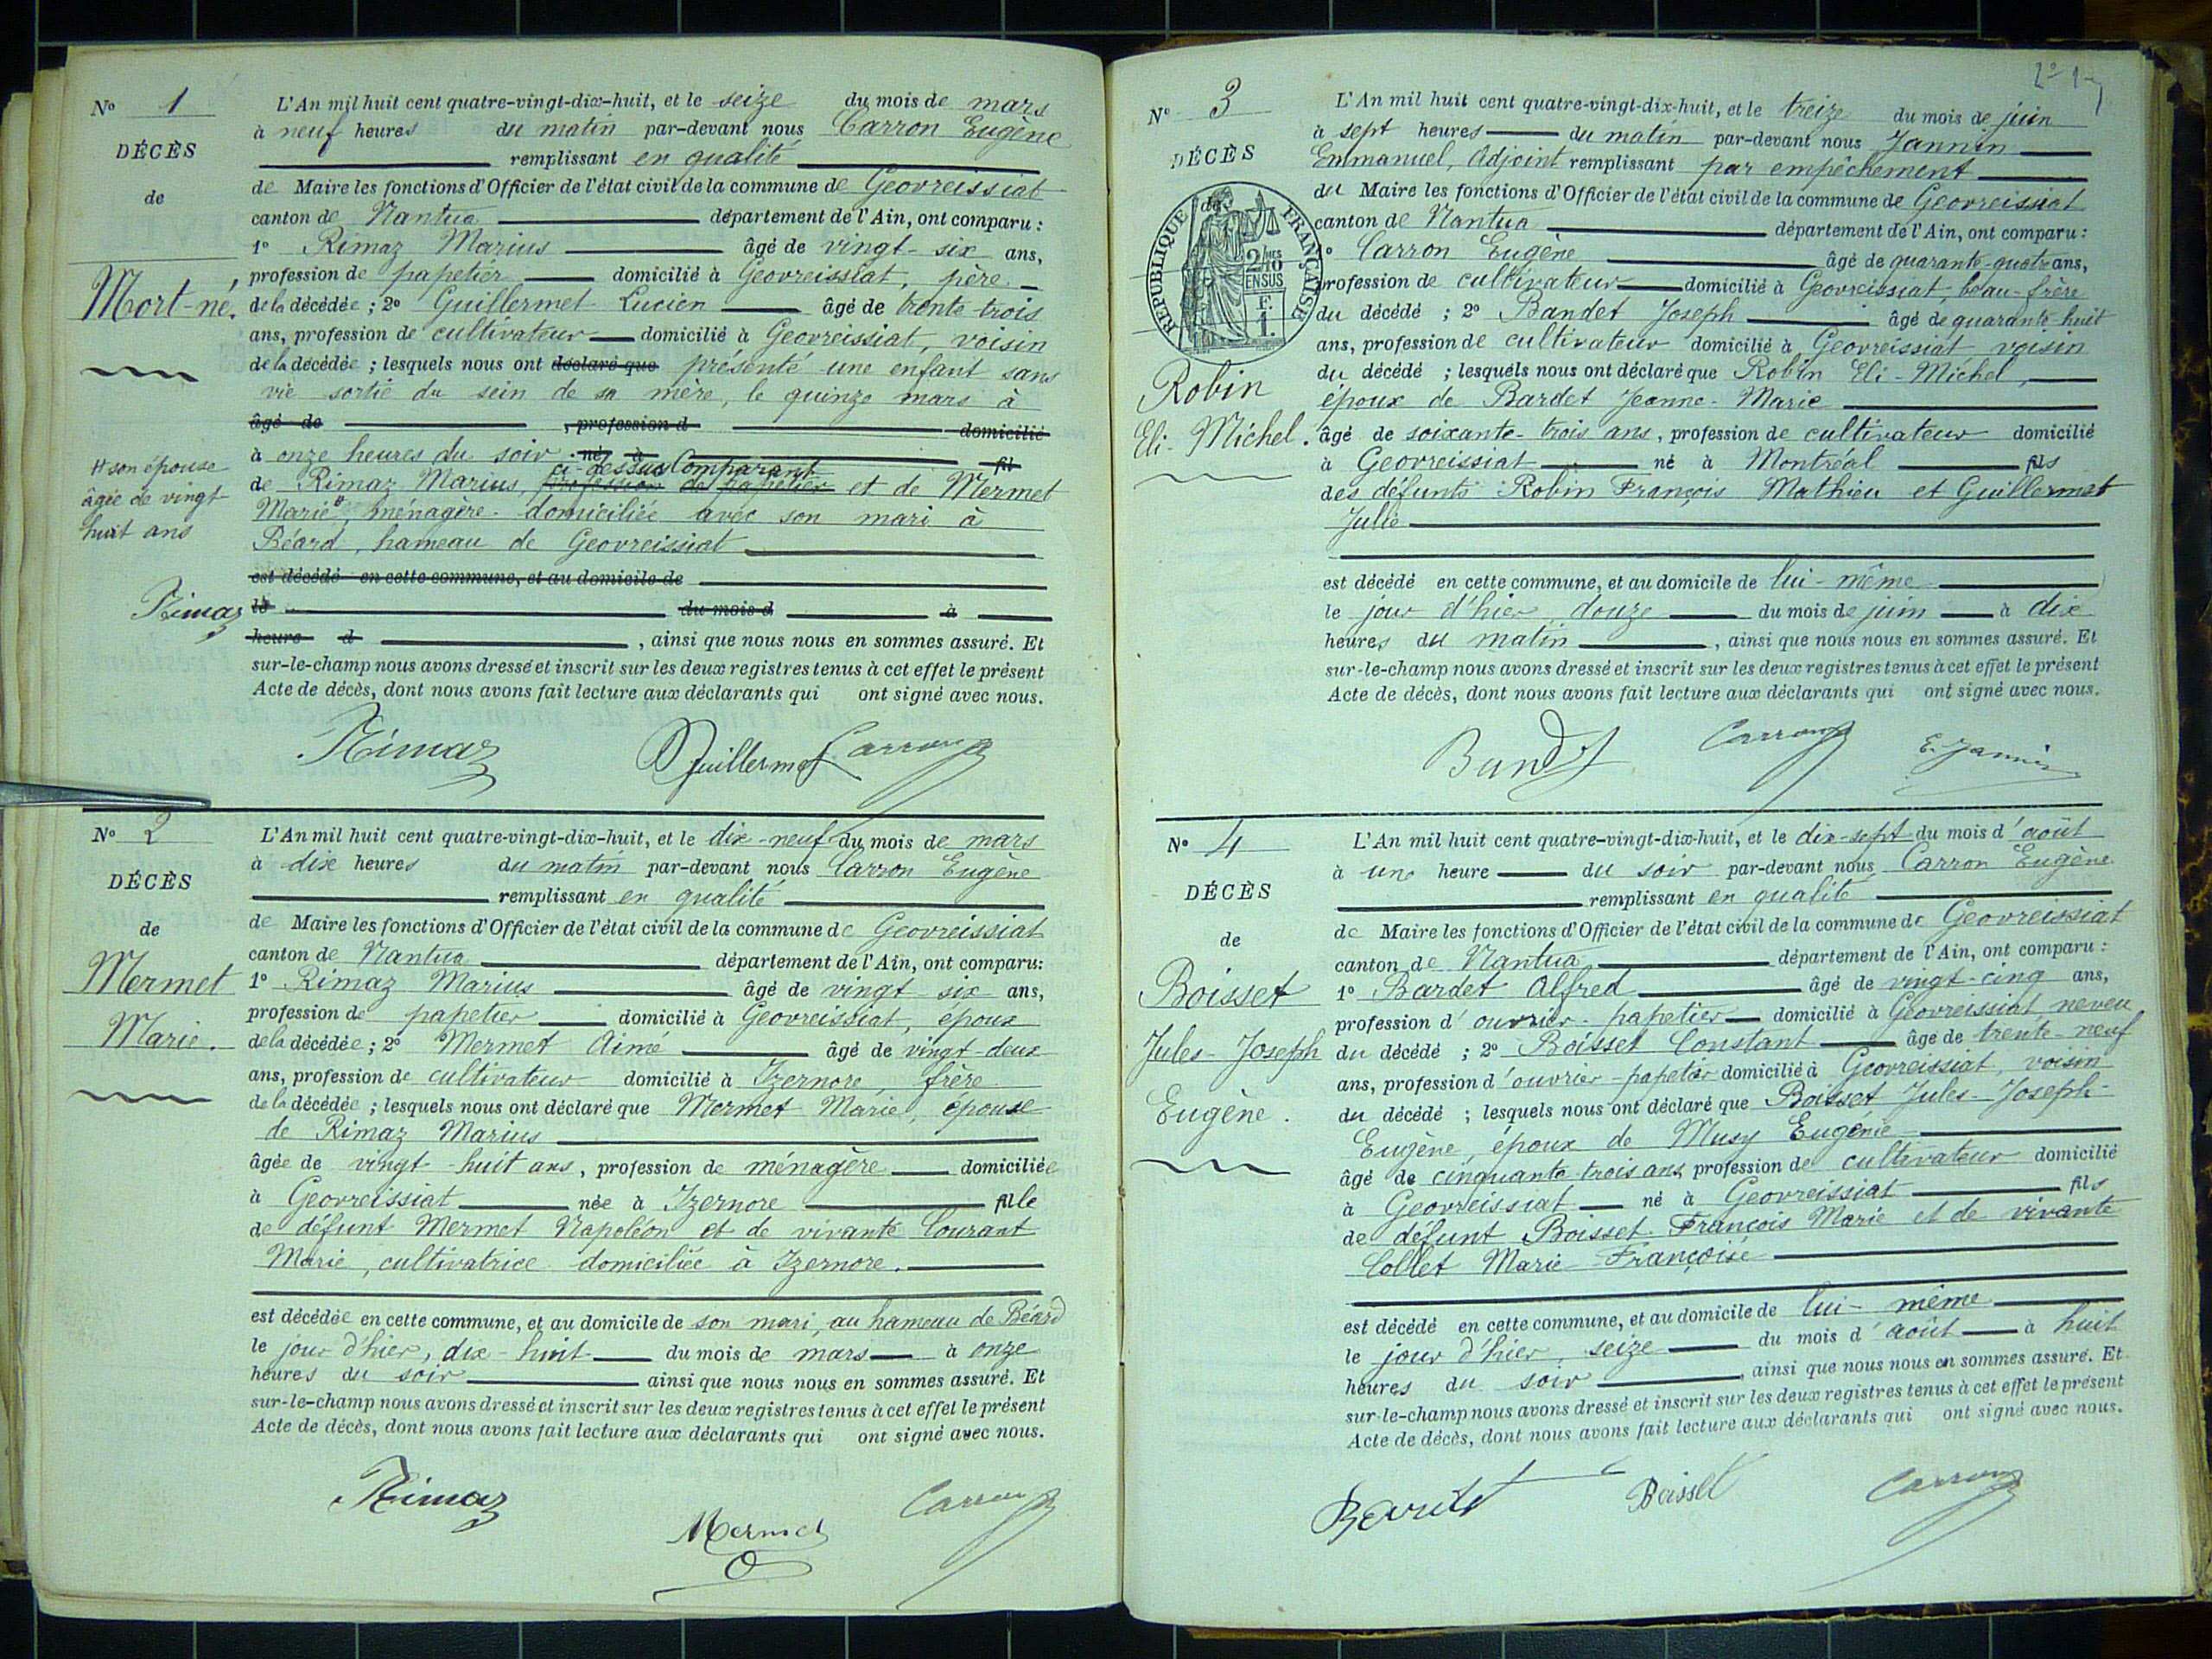 N° 1
DÉCÈS
de
Mort-né.
# son épouse
âgée de vingt
huit ans
Rimaz
L'An mil huit cent quatre-vingt-dix-huit, et le seize du mois de mars
à neuf heures du matin par-devant nous Carron Eugène
remplissant en qualité
de Maire les fonctions d'Officier de l'état civil de la commune de Geovreissiat
canton de Nantua département de l'Ain, ont comparu :
1° Rimaz Marius âgé de vingt-six ans,
profession de papetier domicilié à Geovreissiat, père
de la décédée ; 2° Guillermet Lucien âgé de trente trois
ans, profession de cultivateur domicilié à Geovreissiat, voisin
de la décédée ; lesquels nous ont déclaré que présenté une enfant sans
vie sortie du sein de sa mère, le quinze mars à
âgé de , profession d domicilié
à onze heures du soir né à fil
ci-dessus Comparant
de Rimaz Marius, profession de papetier et de Mermet
Marie #, ménagère domiciliée avec son mari à
Béard, hameau de Geovreissiat
est décédé en cette commune, et au domicile de
le du mois d à
heure d , ainsi que nous nous en sommes assuré. Et
sur-le-champ nous avons dressé et inscrit sur les deux registres tenus à cet effet le présent
Acte de décès, dont nous avons fait lecture aux déclarants qui ont signé avec nous.
Rimaz Guillermet Carron
N° 2
DÉCÈS
de
Mermet
Marie.
L'An mil huit cent quatre-vingt-dix-huit, et le dix-neuf du mois de mars
à dix heures du matin par-devant nous Carron Eugène
remplissant en qualité
de Maire les fonctions d'Officier de l'état civil de la commune de Geovreissiat
canton de Nantua département de l'Ain, ont comparu:
1° Rimaz Marius âgé de vingt-six ans,
profession de papetier domicilié à Geovreissiat, époux
de la décédée ; 2° Mermet Aimé âgé de vingt-deux
ans, profession de cultivateur domicilié à Izernore, frère
de la décédée ; lesquels nous ont déclaré que Mermet Marie, épouse
de Rimaz Marius
âgée de vingt-huit ans, profession de ménagère domiciliée
à Geovreissiat née à Izernore fille
de défunt Mermet Napoléon et de vivante Courant
Marie, cultivatrice domiciliée à Izernore.
est décédée en cette commune, et au domicile de son mari, au hameau de Béard
le jour d'hier, dix-huit du mois de mars à onze
heures du soir ainsi que nous nous en sommes assuré. Et
sur-le-champ nous avons dressé et inscrit sur les deux registres tenus à cet effet le présent
Acte de décès, dont nous avons fait lecture aux déclarants qui ont signé avec nous.
Rimaz Mermet Carron
N° 3
DÉCÈS
de
REPUBLIQUE FRANÇAISE
2/10 EN SUS
F.
1.
Robin
Eli-Michel.
L'An mil huit cent quatre-vingt-dix-huit, et le treize du mois de juin
à sept heures du matin par-devant nous Jannin
Emmanuel, Adjoint remplissant par empêchement
du Maire les fonctions d'Officier de l'état civil de la commune de Geovreissiat
canton de Nantua département de l'Ain, ont comparu :
1° Carron Eugène âgé de quarante-quatre ans,
profession de cultivateur domicilié à Geovreissiat, beau-frère
du décédé ; 2° Bandet Joseph âgé de quarante-huit
ans, profession de cultivateur domicilié à Geovreissiat voisin
du décédé ; lesquels nous ont déclaré que Robin Eli-Michel,
époux de Bardet Jeanne-Marie
âgé de soixante-trois ans, profession de cultivateur domicilié
à Geovreissiat né à Montréal fils
des défunts Robin François Mathieu et Guillermet
Julie
est décédé en cette commune, et au domicile de lui-même
le jour d'hier douze du mois de juin à dix
heures du matin , ainsi que nous nous en sommes assuré. Et
sur-le-champ nous avons dressé et inscrit sur les deux registres tenus à cet effet le présent
Acte de décès, dont nous avons fait lecture aux déclarants qui ont signé avec nous.
Bandet Carron E. Jannin
N° 4
DÉCÈS
de
Boisset
Jules-Joseph
Eugène.
L'An mil huit cent quatre-vingt-dix-huit, et le dix-sept du mois d'août
à une heure du soir par-devant nous Carron Eugène
remplissant en qualité
de Maire les fonctions d'Officier de l'état civil de la commune de Geovreissiat
canton de Nantua département de l'Ain, ont comparu :
1° Bardet Alfred âgé de vingt-cinq ans,
profession d'ouvrier-papetier domicilié à Geovreissiat neveu
du décédé ; 2° Boisset Constant âgé de trente-neuf
ans, profession d'ouvrier-papetier domicilié à Geovreissiat, voisin
du décédé ; lesquels nous ont déclaré que Boisset Jules-Joseph-
Eugène, époux de Musy Eugénie
âgé de cinquante trois ans, profession de cultivateur domicilié
à Geovreissiat né à Geovreissiat fils
de défunt Boisset François Marie et de vivante
Collet Marie Françoise
est décédé en cette commune, et au domicile de lui-même
le jour d'hier, seize du mois d'août à huit
heures du soir , ainsi que nous nous en sommes assuré. Et
sur-le-champ nous avons dressé et inscrit sur les deux registres tenus à cet effet le présent
Acte de décès, dont nous avons fait lecture aux déclarants qui ont signé avec nous.
Bardet Boisset Carron